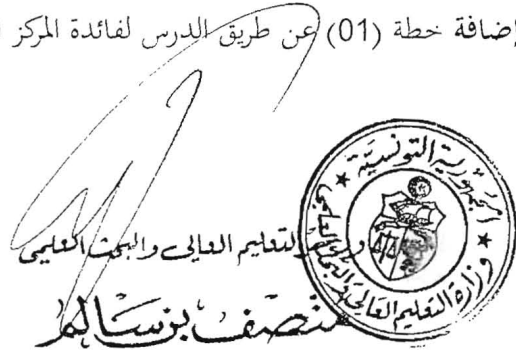 إضافة خطة (01) عن طريق الدرس لفائدة المركز
الجمهورية التونسية
وزارة التعليم العالي والبحث العلمي
وزير التعليم العالي والبحث العلمي
منصف بن سالم